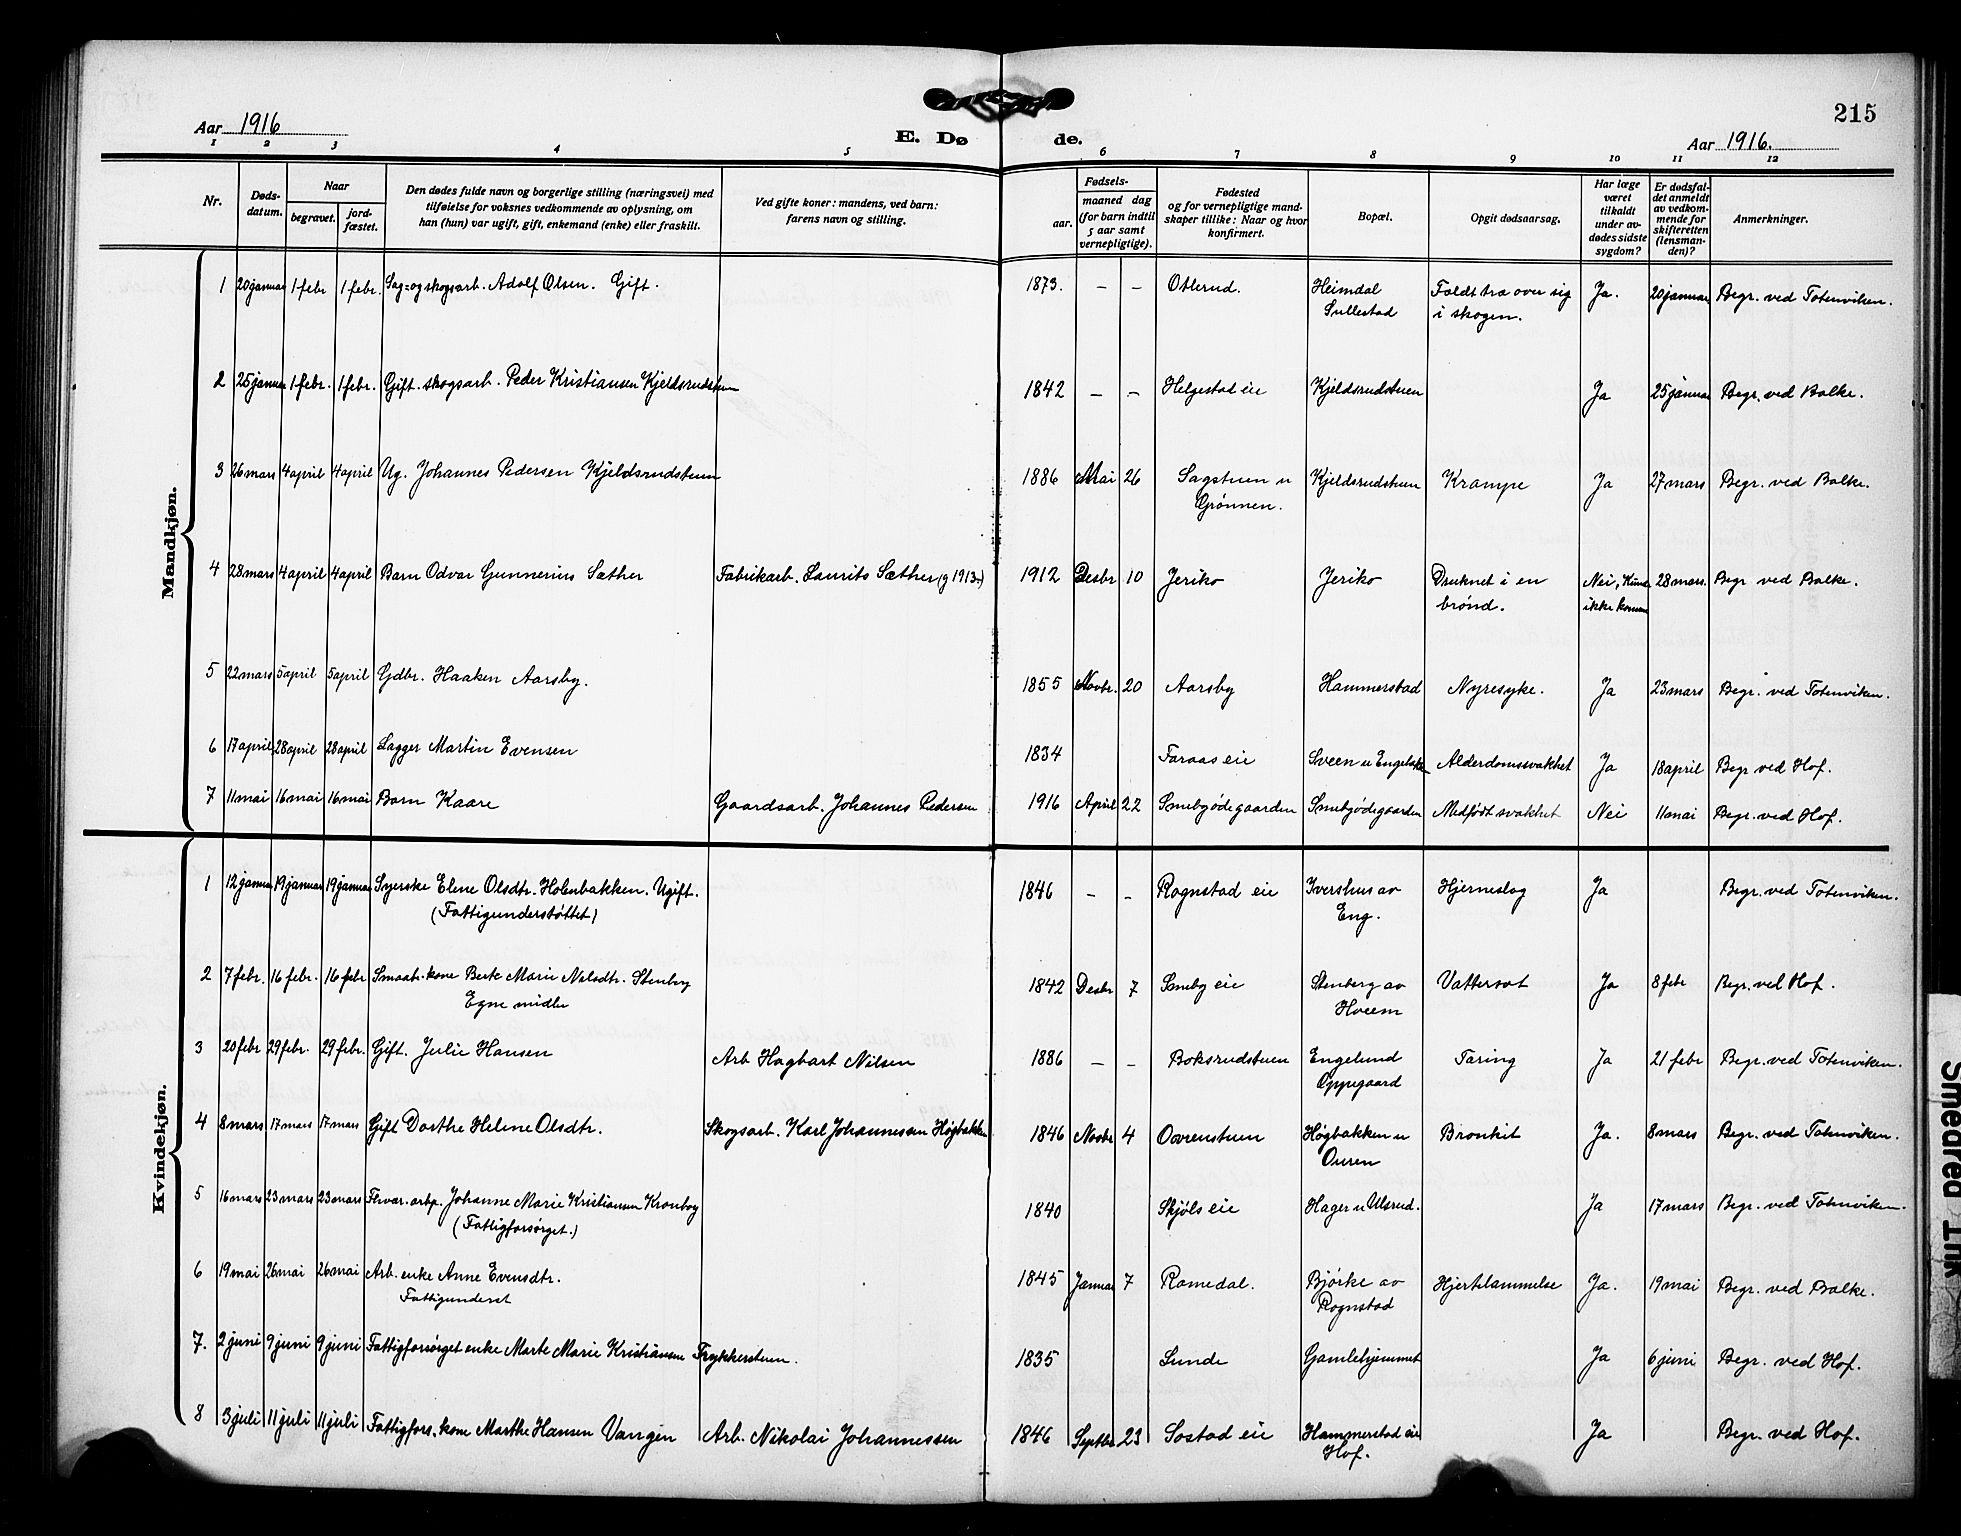 215
Aar 1916
E. Dø de.
Aar 1916.
1 2 3 4 5 6 7 8 9 10 11 12
Nr.
Døds-
datum.
Naar
begravet.
jord-
fæstet.
Den dødes fulde navn og borgerlige stilling (næringsvei) med
tilføielse for voksnes vedkommende av oplysning, om
han (hun) var ugift, gift, enkemand (enke) eller fraskilt.
Ved gifte koner: mandens, ved barn:
farens navn og stilling.
Fødsels-
aar.
maaned dag
(for barn indtil
5 aar samt
vernepligtige).
Fødested
og for vernepligtige mand-
skaper tillike: Naar og hvor
konfirmert.
Bopæl.
Opgit dødsaarsag.
Har læge
været
tilkaldt
under av-
dødes sidste
sygdom?
Er dødsfal-
det anmeldt
av vedkom-
mende for
skifteretten
(lensman-
den)?
Anmerkninger.
Mandkjøn.
1 20 januar 1 febr 1 febr. Sag- og skogsarb. Adolf Olsen. Gift. 1873. – – Otterud. Heimdal Faldt træ over sig Ja. 20 januar Begr. ved Totenviken.
Sullestad i skogen.
2 25 januar 1 febr. 1 febr. Gift. skogsarb. Peder Kristiansen Kjeldsrudstuen 1842 – – Helgestad eie Kjeldsrudstuen Ja 25 januar Begr. ved Balke.
3 26 mars 4 april 4 april Ug. Johannes Pedersen Kjeldsrudstuen 1886 Mai 26 Sagstuen u Kjeldsrudstuen Krampe Ja 27 mars Begr. ved Balke.
Grønnen.
4 28 mars 4 april 4 april Barn Odvar Gunnerius Sæther Fabrikarb. Laurits Sæther (g 1913) 1912 Desbr 10 Jeriko Jeriko Druknet i en Nei, Kunde 28 mars. Begr. ved Balke.
brønd. ikke komme
5 22 mars 5 april 5 april Gdbr. Haaken Aarsby. 1855 Novbr. 20 Aarsby Hammerstad Nyresyke. Ja 23 mars Begr. ved Totenviken.
6 17 april 28 april 28 april Lægger Martin Evensen 1834 Faraas eie Sveen u Engelska Alderdomssvakhet Ja 18 april Begr ved Hof.
7 11 mai 16 mai 16 mai Barn Kaare Gaardsarb. Johannes Pedersen 1916 April 22 Smebyødegaarden Smebyødegaarden Medfødt svakhet Nei 11 mai Begr. ved Hof.
Kvindekjøn.
1 12 januar 19 januar 19 januar Syerske Elene Olsdtr. Holenbakken. Ugift. 1846 – – Rognstad eie Ivershus av Hjerneslag Ja Begr. ved Totenviken.
(Fattigunderstøttet) Eng.
2 7 febr. 16 febr. 16 febr Smaabr. kone Berte Marie Nilsdtr. Stenberg 1842 Desbr 7 Smeby eie Stenberg av Vattersot Ja 8 febr Begr. ved Hof.
Egne midler Hveem
3 20 febr 29 febr. 29 febr. Gift. Julie Hansen Arb Hagbart Nilsen 1886 – – Boksrudstuen Engelund Tæring Ja 21 febr Begr. ved Totenviken.
Oppegaard
4 8 mars 17 mars 17 mars Gift Dorthe Helene Olsdtr. Skogsarb. Karl Johannessen Høgbakken 1846 Novbr 4 Ovrenstuen Høgbakken u Bronkit Ja. 8 mars Begr. ved Totenviken.
Ouren
5 16 mars 23 mars 23 mars Johanne Marie Kristiansen Kronborg 1840 Skjøls eie Hager u Ulsrud. Ja 17 mars Begr. ved Totenviken.
(Fattigforsørget.)
6 19 mai 26 mai 26 mai Arb. enke Anne Evensdtr. 1845 Januar 7 Romedal. Bjørke av Hjertelammelse Ja. 19 mai Begr. ved Balke.
Fattigunderst Rognstad
7. 2 juni 9 juni 9 juni Fattigforsørget enke Marte Marie Kristiansen Frykkerstuen. 1835 Lunde Gamlehjemmet Ja 6 juni Begr. ved Hof.
8 3 juli 11 juli 11 juli Fattigfors. kone Marthe Hansen Vangen Arb. Nikolai Johannessen 1846 Septbr 23 Sostad eie Hammerstad eie Ja Begr. ved Hof.
Hof.